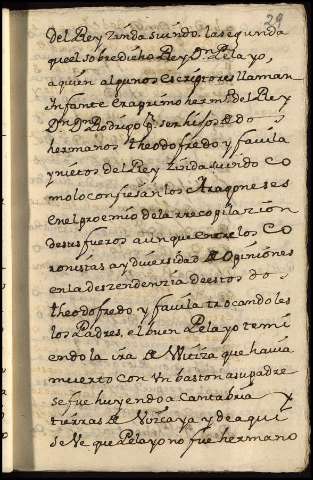 29
del Rey zindasuindo. la segunda
que el sobredicho Rey Dn Pelayo,
a quien algunos escriptores llaman
Infante era primo hermo. del Rey
Dn Rodrigo pr. ser hijos de dos
hermanos theodofredo y favila
y nietos del Rey zindasuindo co
mo lo confiesan los Aragoneses
en el proemio de la recopilazion
de sus fueros aunque entre los Co
ronistas ay diversidad de opiniones
en la deszendenzia de estos dos
theodofredo y favila trocandoles
los Padres. el buen Pelayo temi
endo la ira de Witiza que havia
muerto con un baston a su padre
se fue huyendo a Cantabria y
tierras de Vizcaya y de aqui
se ve que Pelayo no fue hermano